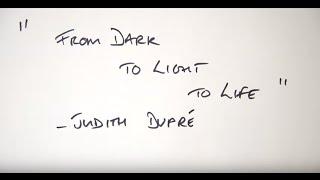 "
From Dark
to Light
to Life "
- Judith Dupré